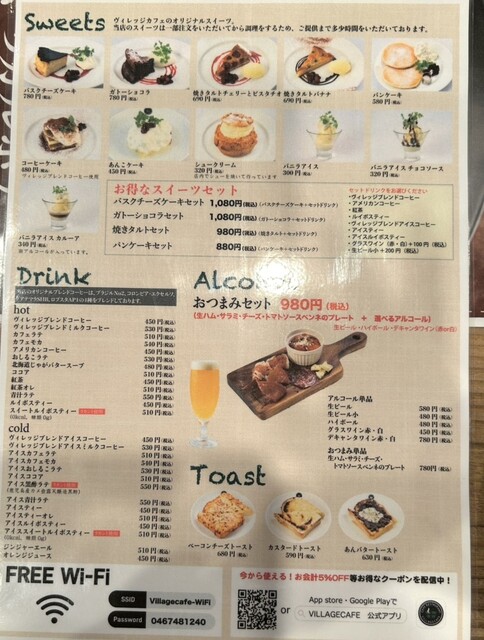 Sweets
ヴィレッジカフェのオリジナルスイーツ。
当店のスイーツは一部注文をいただいてから調理をするため、ご提供まで多少時間をいただいております。
バスクチーズケーキ
780円(税込)
ガトーショコラ
780円(税込)
焼きタルトチェリーとピスタチオ
690円(税込)
焼きタルトバナナ
690円(税込)
パンケーキ
580円(税込)
コーヒーケーキ
480円(税込)
ヴィレッジブレンドコーヒー使用
あんこケーキ
450円(税込)
シュークリーム
320円(税込)
店内でシューを焼いて作っています
バニラアイス
300円(税込)
バニラアイス チョコソース
320円(税込)
バニラアイス カルーア
340円(税込)
お得なスイーツセット
バスクチーズケーキセット 1,080円(税込)(バスクチーズケーキ・セットドリンク)
ガトーショコラセット 1,080円(税込)(ガトーショコラ・セットドリンク)
焼きタルトセット 980円(税込)(焼きタルト・セットドリンク)
パンケーキセット 880円(税込)(パンケーキ・セットドリンク)
セットドリンクをお選びください
・ヴィレッジブレンドコーヒー
・アメリカンコーヒー
・紅茶
・ルイボスティー
・ヴィレッジブレンドアイスコーヒー
・アイスティー
・アイスルイボスティー
・グラスワイン(赤・白)+100円(税込)
・生ビール小+200円(税込)
Drink
hot
ヴィレッジブレンドコーヒー 450円(税込)
ヴィレッジブレンドミルクコーヒー 530円(税込)
カフェラテ 510円(税込)
カフェモカ 540円(税込)
アメリカンコーヒー 450円(税込)
おしるこラテ 530円(税込)
北海道じゃがバタースープ 480円(税込)
ココア 510円(税込)
紅茶 450円(税込)
紅茶オレ 510円(税込)
青汁ラテ 550円(税込)
ルイボスティー 450円(税込)
スイートルイボスティー 510円(税込)
cold
ヴィレッジブレンドアイスコーヒー 450円(税込)
ヴィレッジブレンドアイスミルクコーヒー 530円(税込)
アイスカフェラテ 510円(税込)
アイスカフェモカ 540円(税込)
アイスおしるこラテ 530円(税込)
アイスココア 510円(税込)
アイス黒酢ラテ 550円(税込)
アイス青汁ラテ 550円(税込)
アイスティー 450円(税込)
アイスティーオレ 510円(税込)
アイスルイボスティー 450円(税込)
アイススイートルイボスティー 510円(税込)
ジンジャーエール 510円(税込)
オレンジジュース 450円(税込)
おつまみセット 980円(税込)
(生ハム・サラミ・チーズ・トマトソースペンネのプレート + 選べるアルコール)
生ビール・ハイボール・デキャンタワイン(赤or白)
アルコール単品
生ビール 580円(税込)
生ビール小 480円(税込)
ハイボール 480円(税込)
グラスワイン赤・白 450円(税込)
デキャンタワイン赤・白 780円(税込)
おつまみ単品
生ハム・サラミ・チーズ・
トマトソースペンネのプレート 780円(税込)
Toast
ベーコンチーズトースト
680円(税込)
カスタードトースト
590円(税込)
あんバタートースト
630円(税込)
FREE Wi-Fi
SSID Villagecafe-WiFi
Password 0467481240
今から使える!お会計5%OFF等お得なクーポンを配信中!
or
App store・Google Playで
VILLAGECAFE 公式アプリ